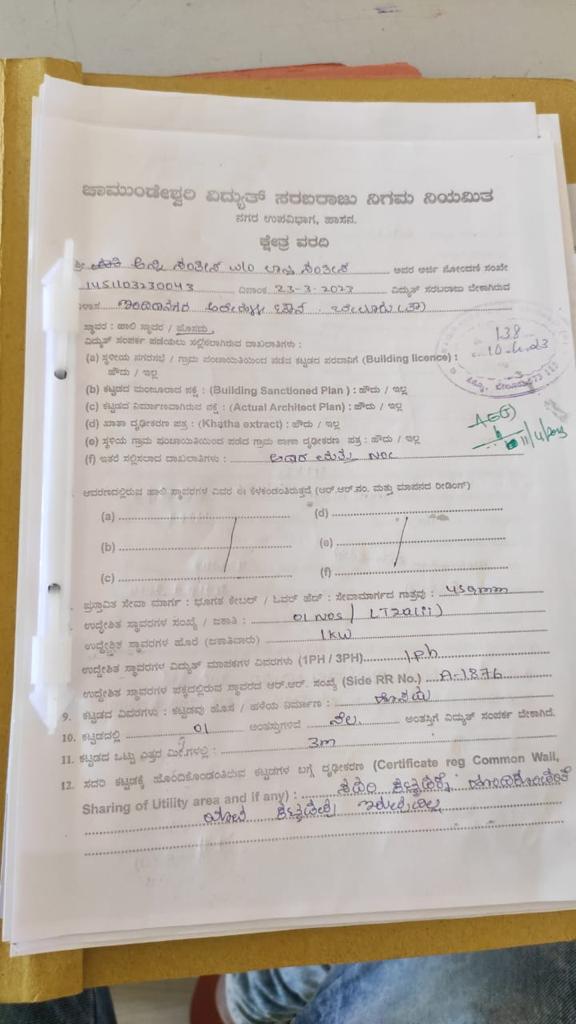 ಚಾಮುಂಡೇಶ್ವರಿ ವಿದ್ಯುತ್ ಸರಬರಾಜು ನಿಗಮ ನಿಯಮಿತ
ನಗರ ಉಪವಿಭಾಗ, ಹಾಸನ.
ಕ್ಷೇತ್ರ ವರದಿ
ಶ್ರೀ W/O ಅವರ ಅರ್ಜಿ ನೋಂದಣಿ ಸಂಖ್ಯೆ
1451103230043 ದಿನಾಂಕ 23-3-2023 ವಿದ್ಯುತ್ ಸರಬರಾಜು ಬೇಕಾಗಿರುವ
ಸ್ಥಾವರ : ಹಾಲಿ ಸ್ಥಾವರ / ಹೊಸದು.
138
10-4-23
ವಿದ್ಯುತ್ ಸಂಪರ್ಕ ಪಡೆಯಲು ಸಲ್ಲಿಸಲಾಗಿರುವ ದಾಖಲಾತಿಗಳು :
(a) ಸ್ಥಳೀಯ ನಗರಸಭೆ / ಗ್ರಾಮ ಪಂಚಾಯಿತಿಯಿಂದ ಪಡೆದ ಕಟ್ಟಡದ ಪರವಾನಿಗೆ (Building licence) :
ಹೌದು / ಇಲ್ಲ
(b) ಕಟ್ಟಡದ ಮಂಜೂರಾದ ನಕ್ಷೆ : (Building Sanctioned Plan) : ಹೌದು / ಇಲ್ಲ
(c) ಕಟ್ಟಡದ ನಿರ್ಮಾಣವಾಗಿರುವ ನಕ್ಷೆ : (Actual Architect Plan) : ಹೌದು / ಇಲ್ಲ
(d) ಖಾತಾ ದೃಢೀಕರಣ ಪತ್ರ : (Khatha extract) : ಹೌದು / ಇಲ್ಲ
AEE
11/4/2023
(e) ಸ್ಥಳೀಯ ಗ್ರಾಮ ಪಂಚಾಯಿತಿಯಿಂದ ಪಡೆದ ಗ್ರಾಮ ಠಾಣಾ ದೃಢೀಕರಣ ಪತ್ರ : ಹೌದು / ಇಲ್ಲ
(f) ಇತರೆ ಸಲ್ಲಿಸಲಾದ ದಾಖಲಾತಿಗಳು : ಆಧಾರ ಮತ್ತು NOC
ಆವರಣದಲ್ಲಿರುವ ಹಾಲಿ ಸ್ಥಾವರಗಳ ವಿವರ ಈ ಕೆಳಕಂಡಂತಿರುತ್ತದೆ (ಆರ್.ಆರ್.ನಂ. ಮತ್ತು ಮಾಪನದ ರೀಡಿಂಗ್)
(a) (d)
(b) (e)
(c) (f)
ಪ್ರಸ್ತಾವಿತ ಸೇವಾ ಮಾರ್ಗ : ಭೂಗತ ಕೇಬಲ್ / ಓವರ್ ಹೆಡ್ : ಸೇವಾಮಾರ್ಗದ ಗಾತ್ರವು :
ಉದ್ದೇಶಿತ ಸ್ಥಾವರಗಳ ಸಂಖ್ಯೆ / ಜಕಾತಿ : 01 NOS / LT2a(ii)
ಉದ್ದೇಶಿತ ಸ್ಥಾವರಗಳ ಹೊರೆ (ಜಕಾತಿವಾರು) 1kw
ಉದ್ದೇಶಿತ ಸ್ಥಾವರಗಳ ವಿದ್ಯುತ್ ಮಾಪಕಗಳ ವಿವರಗಳು (1PH / 3PH) 1ph
ಉದ್ದೇಶಿತ ಸ್ಥಾವರಗಳ ಪಕ್ಕದಲ್ಲಿರುವ ಸ್ಥಾವರದ ಆರ್.ಆರ್. ಸಂಖ್ಯೆ (Side RR No.) A-1876
9. ಕಟ್ಟಡದ ವಿವರಗಳು : ಕಟ್ಟಡವು ಹೊಸ / ಹಳೆಯ ನಿರ್ಮಾಣ :
10. ಕಟ್ಟಡದಲ್ಲಿ 01 ಅಂತಸ್ತುಗಳಿವೆ ನೆಲ ಅಂತಸ್ತಿಗೆ ವಿದ್ಯುತ್ ಸಂಪರ್ಕ ಬೇಕಾಗಿದೆ.
11. ಕಟ್ಟಡದ ಒಟ್ಟು ಎತ್ತರ ಮೀ.ಗಳಲ್ಲಿ : 3m
12. ಸದರಿ ಕಟ್ಟಡಕ್ಕೆ ಹೊಂದಿಕೊಂಡಂತಿರುವ ಕಟ್ಟಡಗಳ ಬಗ್ಗೆ ದೃಢೀಕರಣ (Certificate reg Common Wall,
Sharing of Utility area and if any) : ಸದರಿ ಕಟ್ಟಡಕ್ಕೆ ಹೊಂದಿಕೊಂಡಂತೆ
ಯಾವ ಕಟ್ಟಡವು ಇರುವುದಿಲ್ಲ